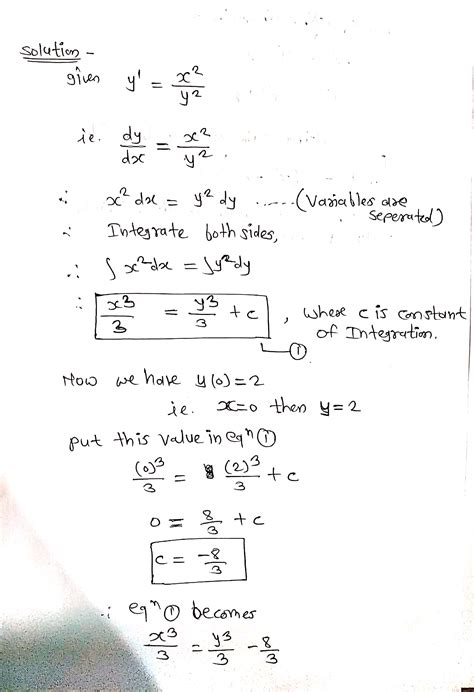 solution -
given y' = x²/y²
ie. dy/dx = x²/y² .
∴ x² dx = y² dy ...... (Variables are seperated)
∴ Integrate both sides,
∴ ∫ x² dx = ∫ y² dy
∴ x³/3 = y³/3 + c , where c is constant of Integration.
①
Now we have y(0) = 2
ie. x=0 then y=2
put this value in eqⁿ ①
(0)³/3 = (2)³/3 + c
0 = 8/3 + c
c = -8/3
∴ eqⁿ ① becomes
x³/3 = y³/3 - 8/3